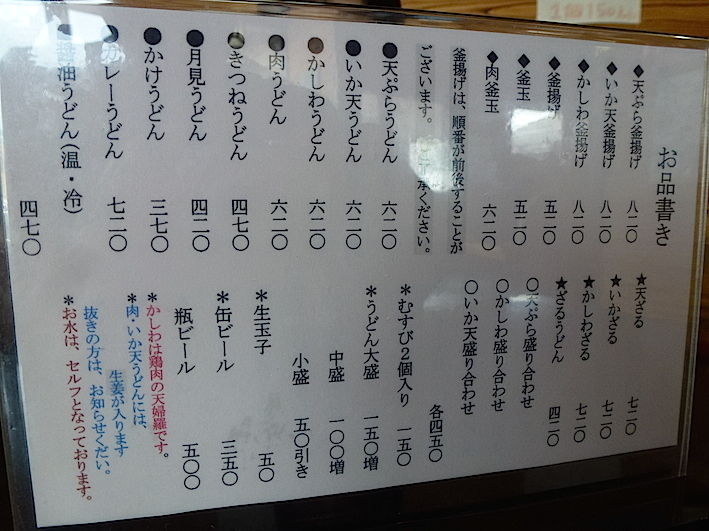 お品書き
◆天ぷら釜揚げ 八二〇
◆いか天釜揚げ 八二〇
◆かしわ釜揚げ 八二〇
◆釜揚げ 五二〇
◆釜玉 五二〇
◆肉釜玉 六二〇
釜揚げは、順番が前後することが
ございます。 ください。
●天ぷらうどん 六二〇
●いか天うどん 六二〇
●かしわうどん 六二〇
●肉うどん 六二〇
●きつねうどん 四七〇
●月見うどん 四二〇
●かけうどん 三七〇
●カレーうどん 七二〇
●醤油うどん(温・冷) 四七〇
★天ざる 七二〇
★いかざる 七二〇
★かしわざる 七二〇
★ざるうどん 四二〇
〇天ぷら盛り合わせ
〇かしわ盛り合わせ
〇いか天盛り合わせ
各四五〇
*むすび2個入り 一五〇
*うどん大盛 一五〇増
中盛 一〇〇増
小盛 五〇引き
*生玉子 五〇
*缶ビール 三五〇
瓶ビール 五〇〇
*かしわは鶏肉の天婦羅です。
*肉・いか天うどんには、
生姜が入ります
抜きの方は、お知らせくだい。
*お水は、セルフとなっております。